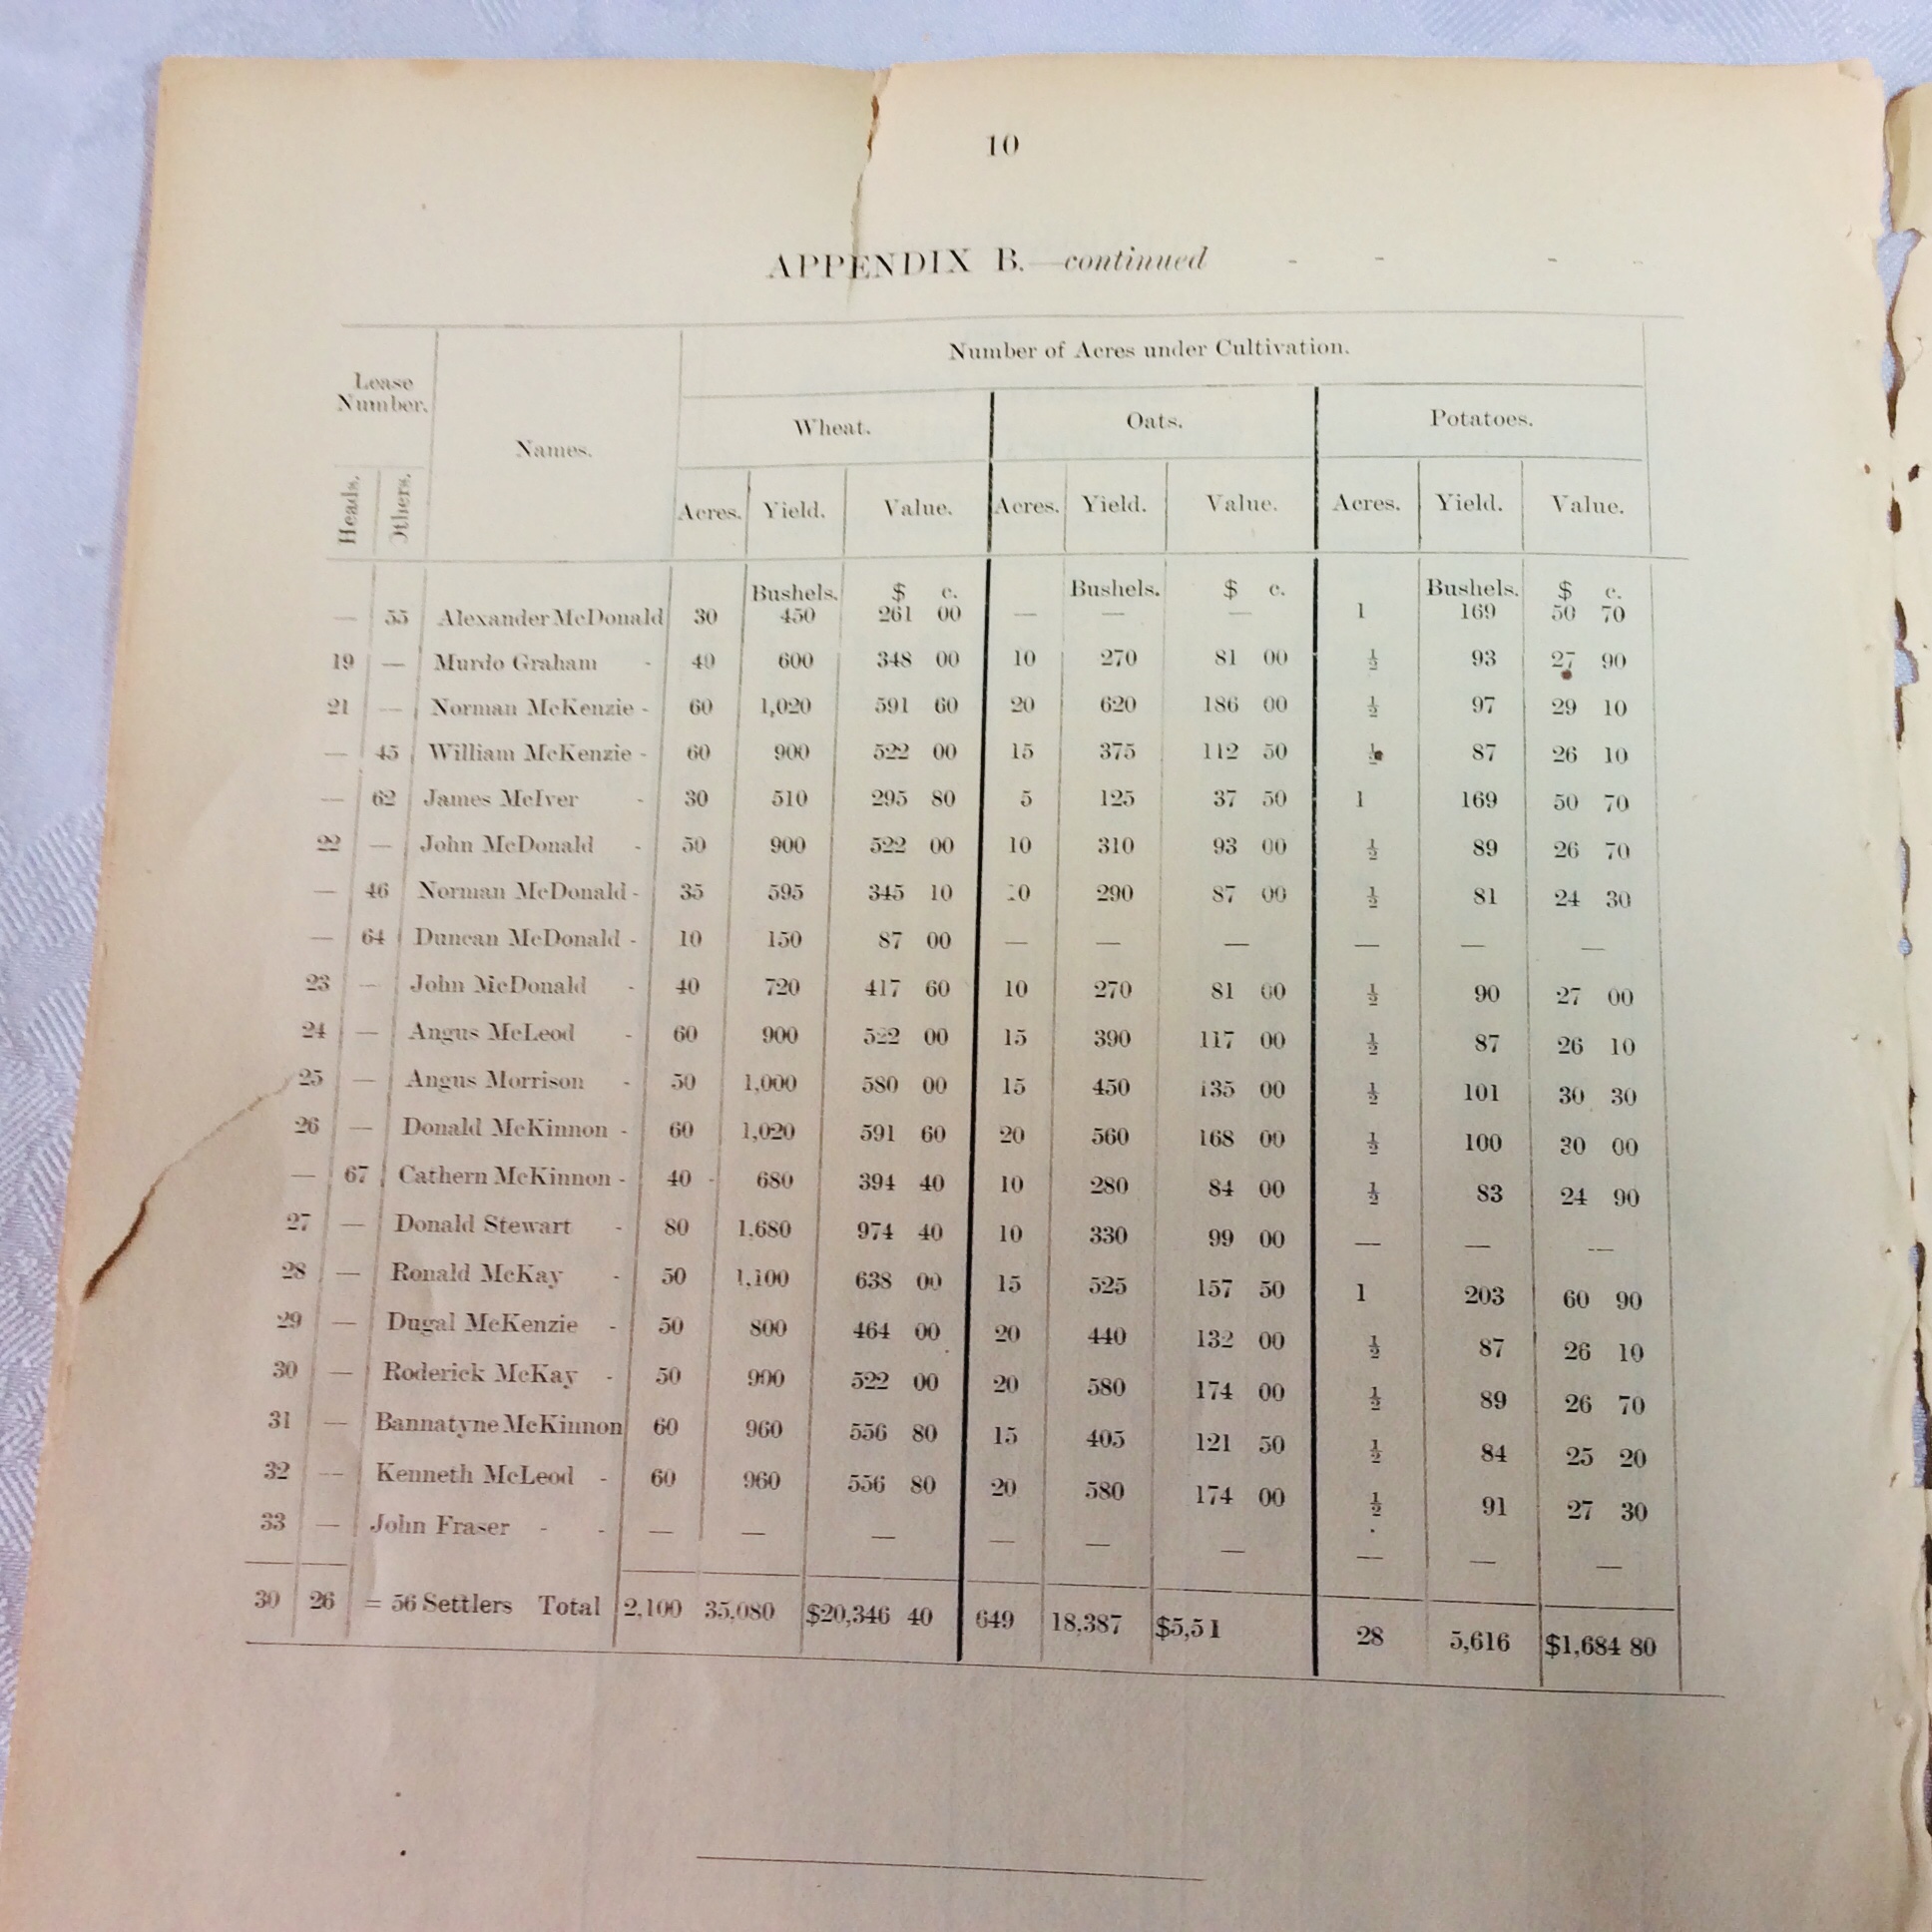 10
APPENDIX B.—continued
Number of Acres under Cultivation.
Lease Number.
Names.
Wheat. Oats. Potatoes.
Heads. Others. Acres. Yield. Value. Acres. Yield. Value. Acres. Yield. Value.
Bushels. $ c. Bushels. $ c. Bushels. $ c.
— 55 Alexander McDonald 30 450 261 00 — — — 1 169 50 70
19 — Murdo Graham - 40 600 348 00 10 270 81 00 ½ 93 27 90
21 — Norman McKenzie - 60 1,020 591 60 20 620 186 00 ½ 97 29 10
— 45 William McKenzie - 60 900 522 00 15 375 112 50 ½ 87 26 10
— 62 James McIver - 30 510 295 80 5 125 37 50 1 169 50 70
22 — John McDonald - 50 900 522 00 10 310 93 00 ½ 89 26 70
— 46 Norman McDonald - 35 595 345 10 10 290 87 00 ½ 81 24 30
— 64 Duncan McDonald - 10 150 87 00 — — — — — —
23 — John McDonald - 40 720 417 60 10 270 81 00 ½ 90 27 00
24 — Angus McLeod - 60 900 522 00 15 390 117 00 ½ 87 26 10
25 — Angus Morrison - 50 1,000 580 00 15 450 135 00 ½ 101 30 30
26 — Donald McKinnon - 60 1,020 591 60 20 560 168 00 ½ 100 30 00
— 67 Cathern McKinnon - 40 680 394 40 10 280 84 00 ½ 83 24 90
27 — Donald Stewart - 80 1,680 974 40 10 330 99 00 — — —
28 — Ronald McKay - 50 1,100 638 00 15 525 157 50 1 203 60 90
29 — Dugal McKenzie - 50 800 464 00 20 440 132 00 ½ 87 26 10
30 — Roderick McKay - 50 900 522 00 20 580 174 00 ½ 89 26 70
31 — Bannatyne McKinnon 60 960 556 80 15 405 121 50 ½ 84 25 20
32 — Kenneth McLeod - 60 960 556 80 20 580 174 00 ½ 91 27 30
33 — John Fraser - - — — — — — — — — —
30 26 = 56 Settlers Total 2,100 35,080 $20,346 40 649 18,387 $5,51 28 5,616 $1,684 80